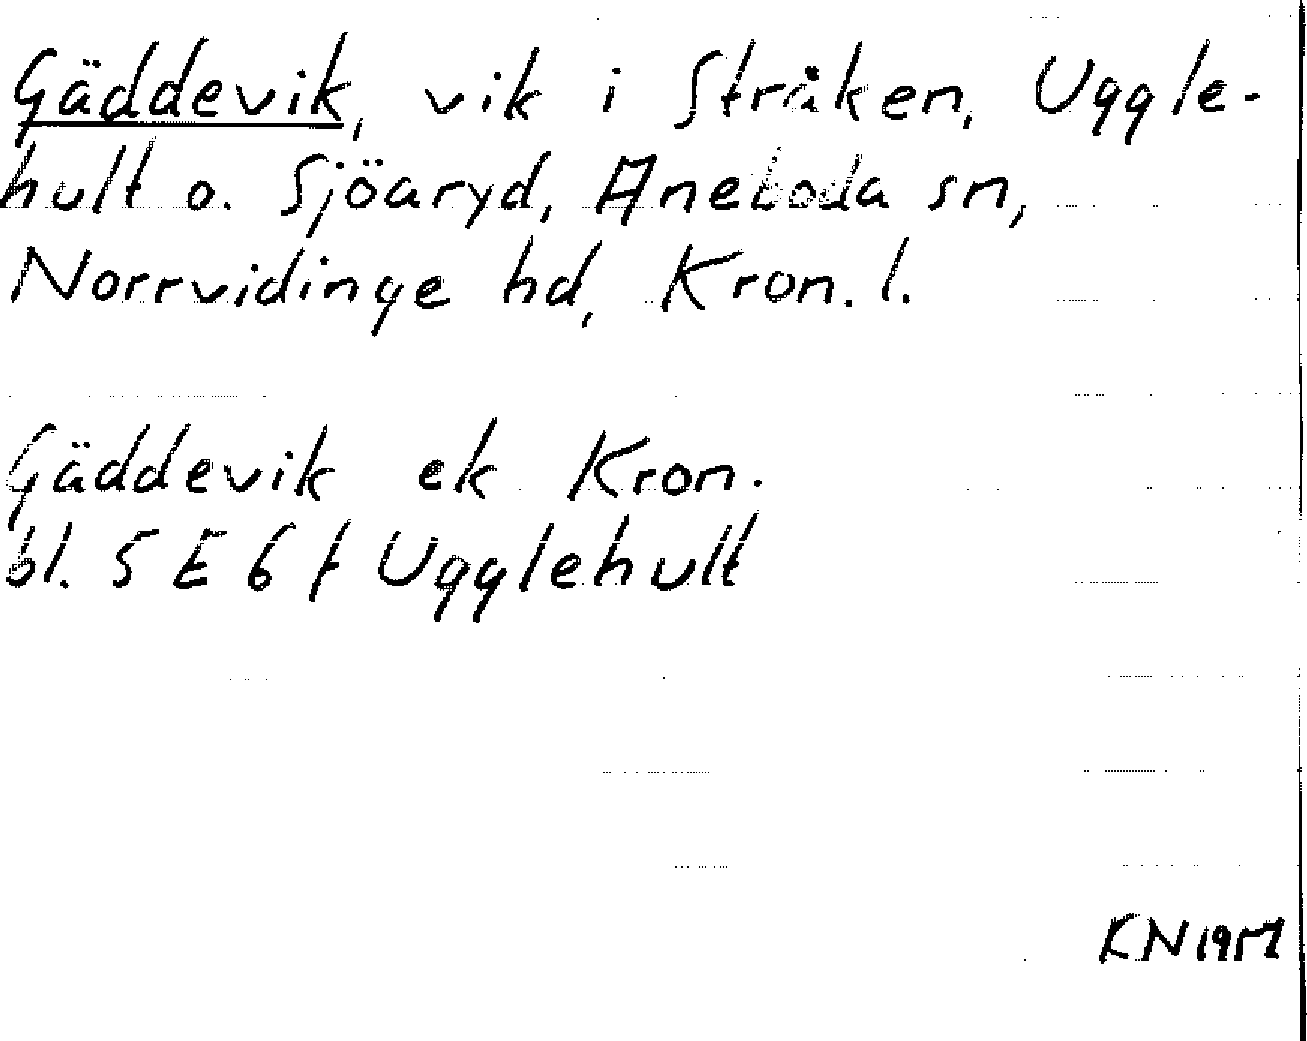 Gäddevik, vik i Stråken, Uggle-
hult o. Sjöaryd, Aneboda sn,
Norrvidinge hd, Kron. l.
Gäddevik ek Kron.
bl. 5 E 6 f Ugglehult
KN 1957